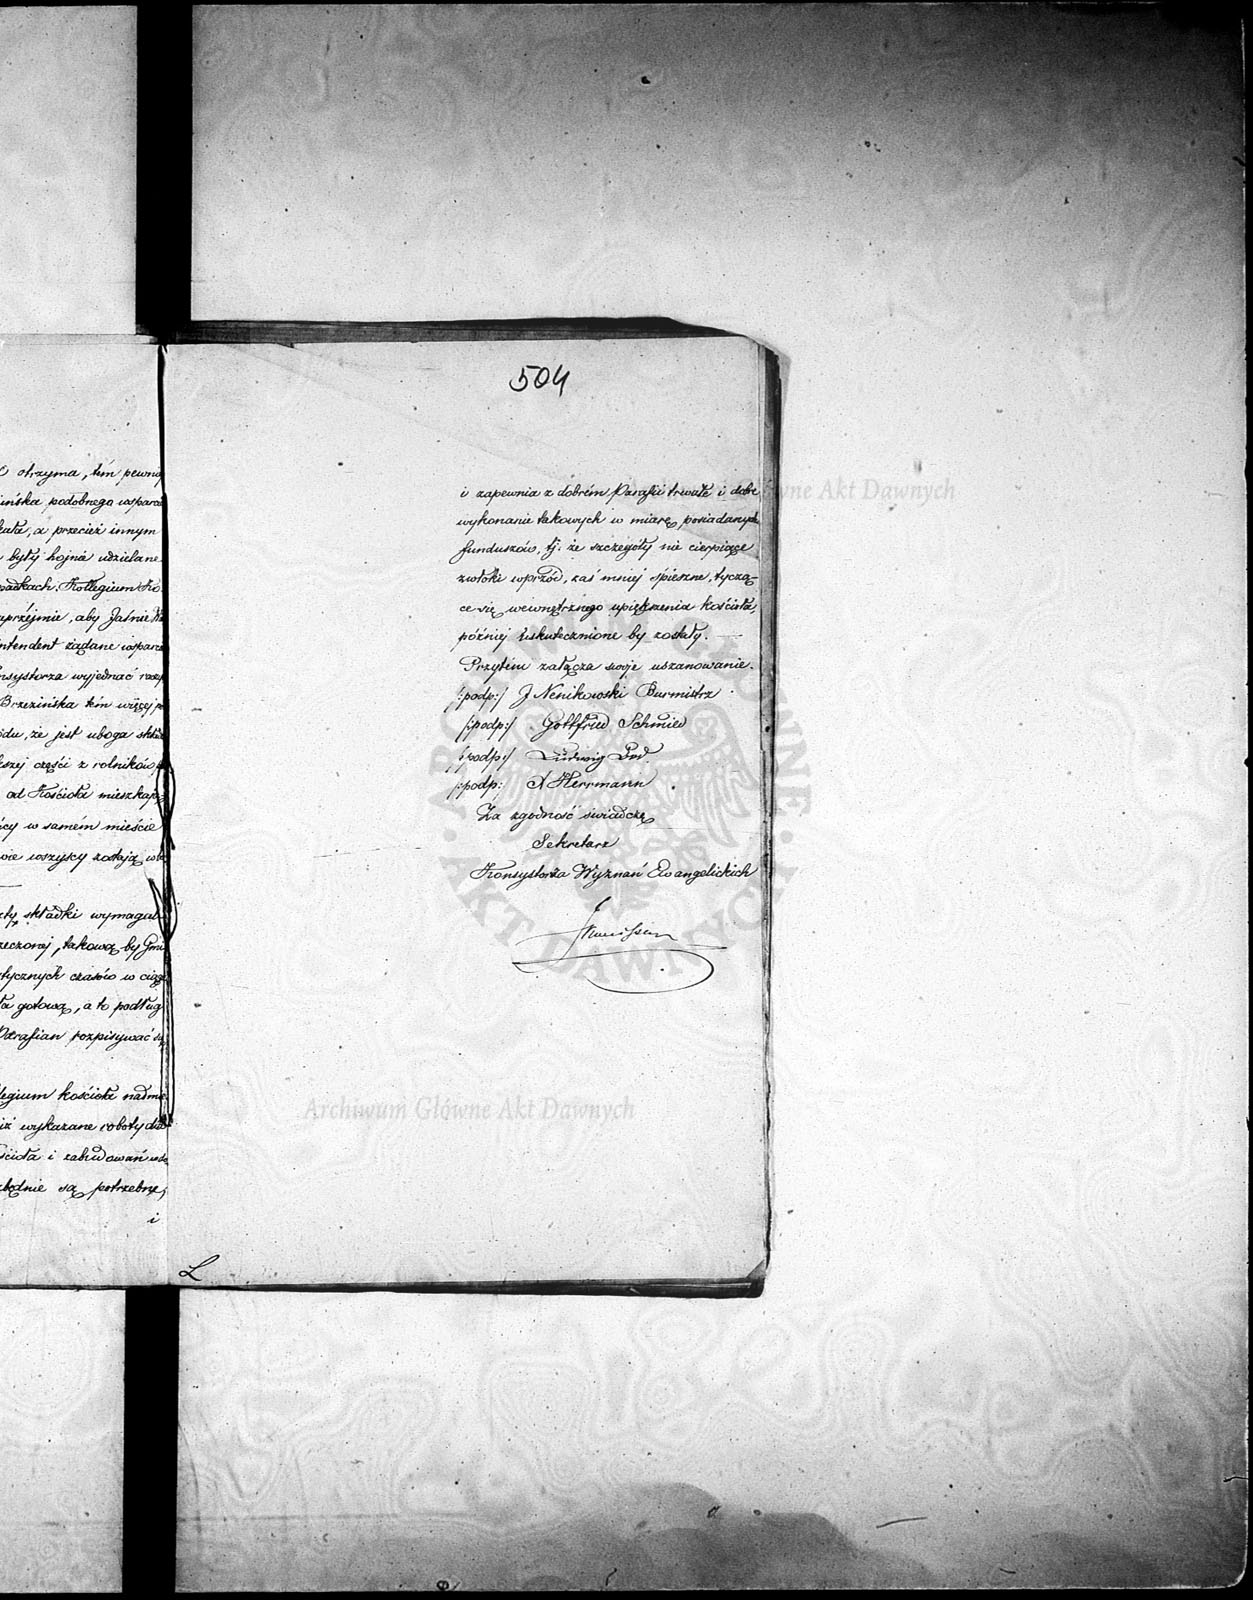 otrzyma, tém pewno
ińska podobnego wsparci
kała, a przecież innym
były hojnie udzielane
padkach. Kollegium Ko
uprzejmie, aby Jaśnie W
intendent żądane wsparci
nsystorza wyjednać raczy
Brzezińska tém więcej p
odu, że jest uboga skład
kszej części z rolników
od Kościoła mieszkają
cy w samém mieście
wie wszyscy zostają w bi
ty składki wymagał
rzeczonej, takową by Gmi
tycznych czasów w ciągu
ła gotową, a to podług
Parafian rozpisywać się
legium kościoła nadmie
iż wykazane roboty dla
ścioła i zabudowań
zbędnie są potrzebne,
i
504
i zapewnia z dobrém Parafii trwałe i dobre
wykonanie takowych w miarę posiadanych
funduszów, tj. że szczegóły nie cierpiące
zwłoki wprzód, zaś mniej śpieszne, tyczą-
ce się wewnętrznego upiększenia kościoła,
później uskutecznione by zostały. —
Przytém załącza swoje uszanowanie.
/:podp:/ J Nenikowski Burmistrz
/:podp:/ Gottfried Schmied
/:podp:/ Ludwig
/:podp: A Herrmann
Za zgodność świadczę
Sekretarz
Konsystorza Wyznań Ewangelickich
L
Archiwum Główne Akt Dawnych
Archiwum Główne Akt Dawnych
ARCHIWUM GŁÓWNE AKT DAWNYCH